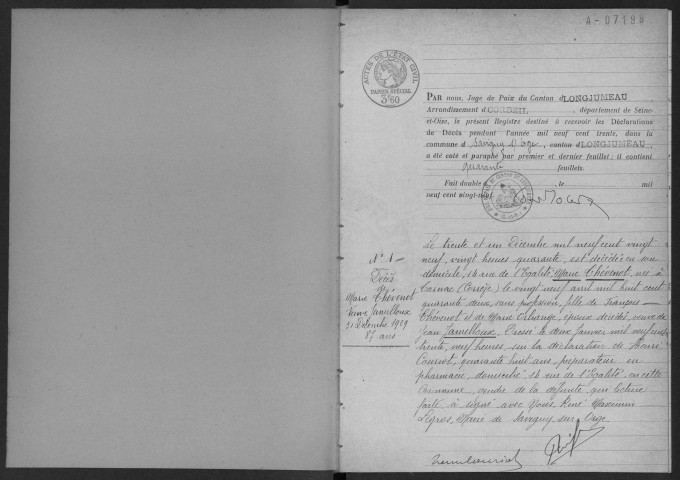 A-07198
ACTES DE L'ÉTAT CIVIL
PAPIER SPÉCIAL
3f60
PAR nous, Juge de Paix du Canton d LONGJUMEAU
Arrondissement d CORBEIL, département de Seine-
et-Oise, le présent Registre destiné à recevoir les Déclarations
de Décès pendant l'année mil neuf cent trente, dans la
commune d Savigny s/ Orge, canton d LONGJUMEAU,
a été coté et paraphé par premier et dernier feuillet; il contient
quarante feuillets.
Fait double le mil
neuf cent vingt-neuf
N° 1
Décès
de
Marie Chévenot
Veuve Jamelloux
31 Décembre 1929
87 ans
Le trente et un Décembre mil neuf cent vingt
neuf, vingt heures quarante, est décédée en son
domicile, 16 rue de l'Egalité: Marie Chévenot, née à
(Corrèze) le vingt neuf avril mil huit cent
quarante deux, sans profession, fille de François
Chévenot et de Marie, époux décédés, veuve de
Jean Jamelloux. Dressé le deux Janvier mil neuf cent
trente, neuf heures, sur la déclaration de Henri
Couriol, quarante huit ans, préparateur en
pharmacie, domicilié 16 rue de l'Egalité en cette
commune, gendre de la défunte, qui lecture
faite, a signé avec Nous, René Maximin
Legros, Maire de Savigny sur Orge.